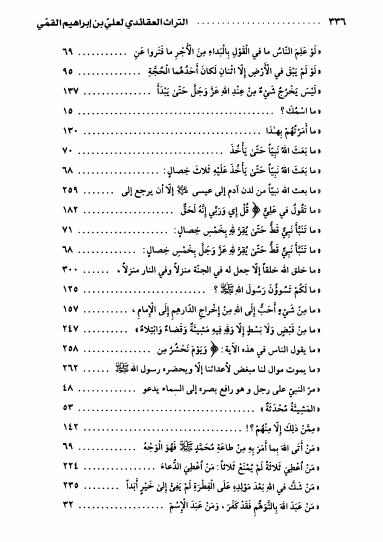 ٣٣٦ ........ التراث العقائدي لعلي بن إبراهيم القمّي
«لَوْ عَلِمَ النَّاسُ ما في الْقَوْلِ بِالْبَداءِ مِنَ الْأَجْرِ ما فَتَروا عَنِ ........ ٦٩
«لَوْ لَمْ يَبْقَ في الْأَرْضِ إلّا اثْنانِ لَكانَ أَحَدُهُما الْحُجَّةَ ........ ٩٥
«لَيْسَ يَخْرُجُ شَيْءٌ مِنْ عِنْدِ اللهِ عَزَّ وَجَلَّ حَتّىٰ يَبْدَأَ ........ ١٣٧
«ما اسْمُكَ؟ ........ ١٥
«ما أَمَرْتُهُمْ بِهٰذا ........ ١٣٠
«ما بَعَثَ اللهُ نَبِيّاً حَتّىٰ يَأْخُذَ ........ ٧٠
«ما بَعَثَ اللهُ نَبِيّاً حَتّىٰ يَأْخُذَ عَلَيْهِ ثَلاثَ خِصالٍ: ........ ٦٨
«ما بعث الله نبيّاً من لدن آدم إلى عيسى ﷺ إلّا أن يرجع إلى ........ ٢٥٩
«ما تَقُولُ في عَلِيٍّ ﴿ قُلْ إي وَرَبّي إِنَّهُ لَحَقٌّ ........ ١٨٢
«ما تَنَبَّأَ نَبِيٌّ قَطُّ حَتّىٰ يُقِرَّ لِلهِ بِخَمْسِ خِصالٍ: ........ ٧١
«ما تَنَبَّأَ نَبِيٌّ قَطُّ حَتّىٰ يُقِرَّ لِلهِ عَزَّ وَجَلَّ بِخَمْسِ خِصالٍ: ........ ٦٨
«ما خلق الله خلقاً إلّا جعل له في الجنّة منزلاً وفي النار منزلاً، ........ ٣٠٠
«ما لَكُمْ تَسوؤُونَ رَسولَ اللهِ ﷺ؟ ........ ١٢٥
«ما مِنْ شَيْءٍ أَحَبُّ إِلَى اللهِ مِنْ إِخْراجِ الدَّراهِمِ إِلَى الْإِمامِ، ........ ١٥٧
«ما مِنْ قَبْضٍ وَلا بَسْطٍ إِلّا وَلِلهِ فيهِ مَشيئَةٌ وَقَضاءٌ وَابْتِلاءٌ» ........ ٢٤٧
«ما يقول الناس في هذه الآية: ﴿ وَيَوْمَ نَحْشُرُ مِن ........ ٢٥٨
«ما يموت موال لنا مبغض لأعدائنا إلّا ويحضره رسول الله ﷺ ........ ٢٦٢
«مرّ النبيّ على رجل و هو رافع بصره إلى السماء يدعو ........ ٤٨
«الْمَشيئَةُ مُحْدَثَةٌ» ........ ٥٣
«مِمَّنْ ذٰلِكَ إِلّا مِنْهُمْ؟! ........ ١٤٢
«مَنْ أَتَى اللهَ بِما أَمَرَ بِهِ مِنْ طاعَةِ مُحَمَّدٍ ﷺ فَهُوَ الْوَجْهُ ........ ٦٩
«مَنْ أُعْطِيَ ثَلاثَةً لَمْ يُمْنَعْ ثَلاثاً: مَنْ أُعْطِيَ الدُّعاءَ ........ ٢٢٤
«مَنْ شَكَّ في اللهِ بَعْدَ مَوْلِدِهِ عَلَى الْفِطْرَةِ لَمْ يَفِئْ إِلىٰ خَيْرٍ أَبَداً ........ ٢٣٥
«مَنْ عَبَدَ اللهَ بِالتَّوَهُّمِ فَقَدْ كَفَرَ، وَمَنْ عَبَدَ الْإِسْمَ ........ ٣٢